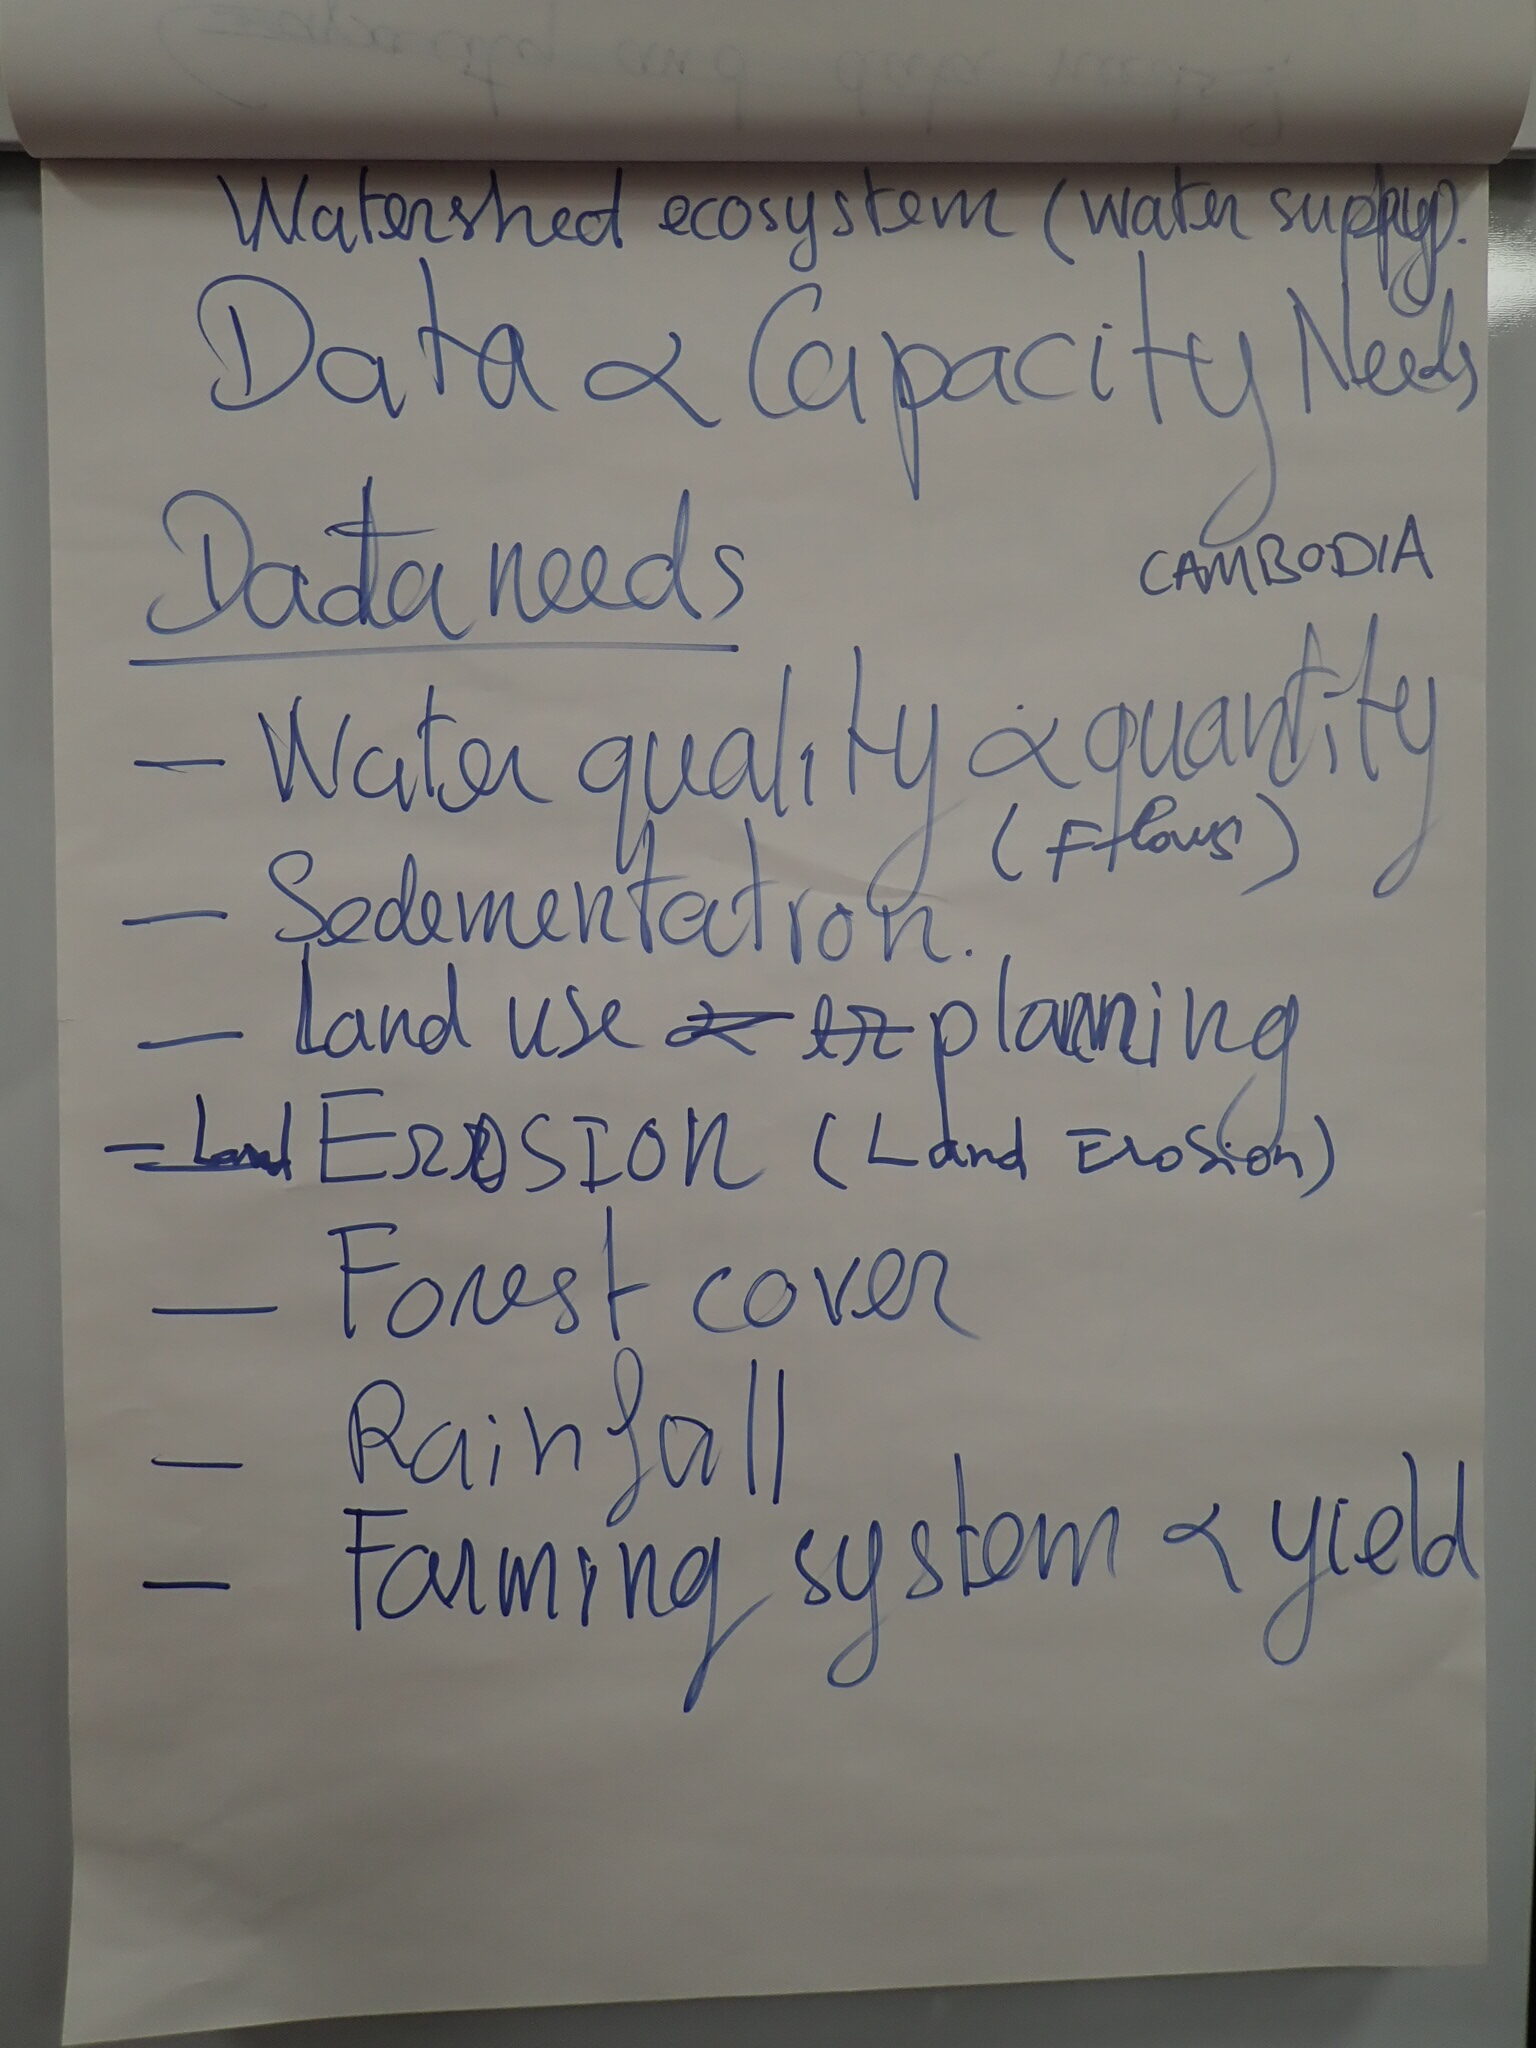 Watershed ecosystem (water supply).
Data & Capacity Needs
CAMBODIA
Data needs
- Water quality & quantity
(Flows)
- Sedementation.
- Land use planning
- Erosion (Land Erosion)
- Forest cover
- Rainfall
- Farming system & yield